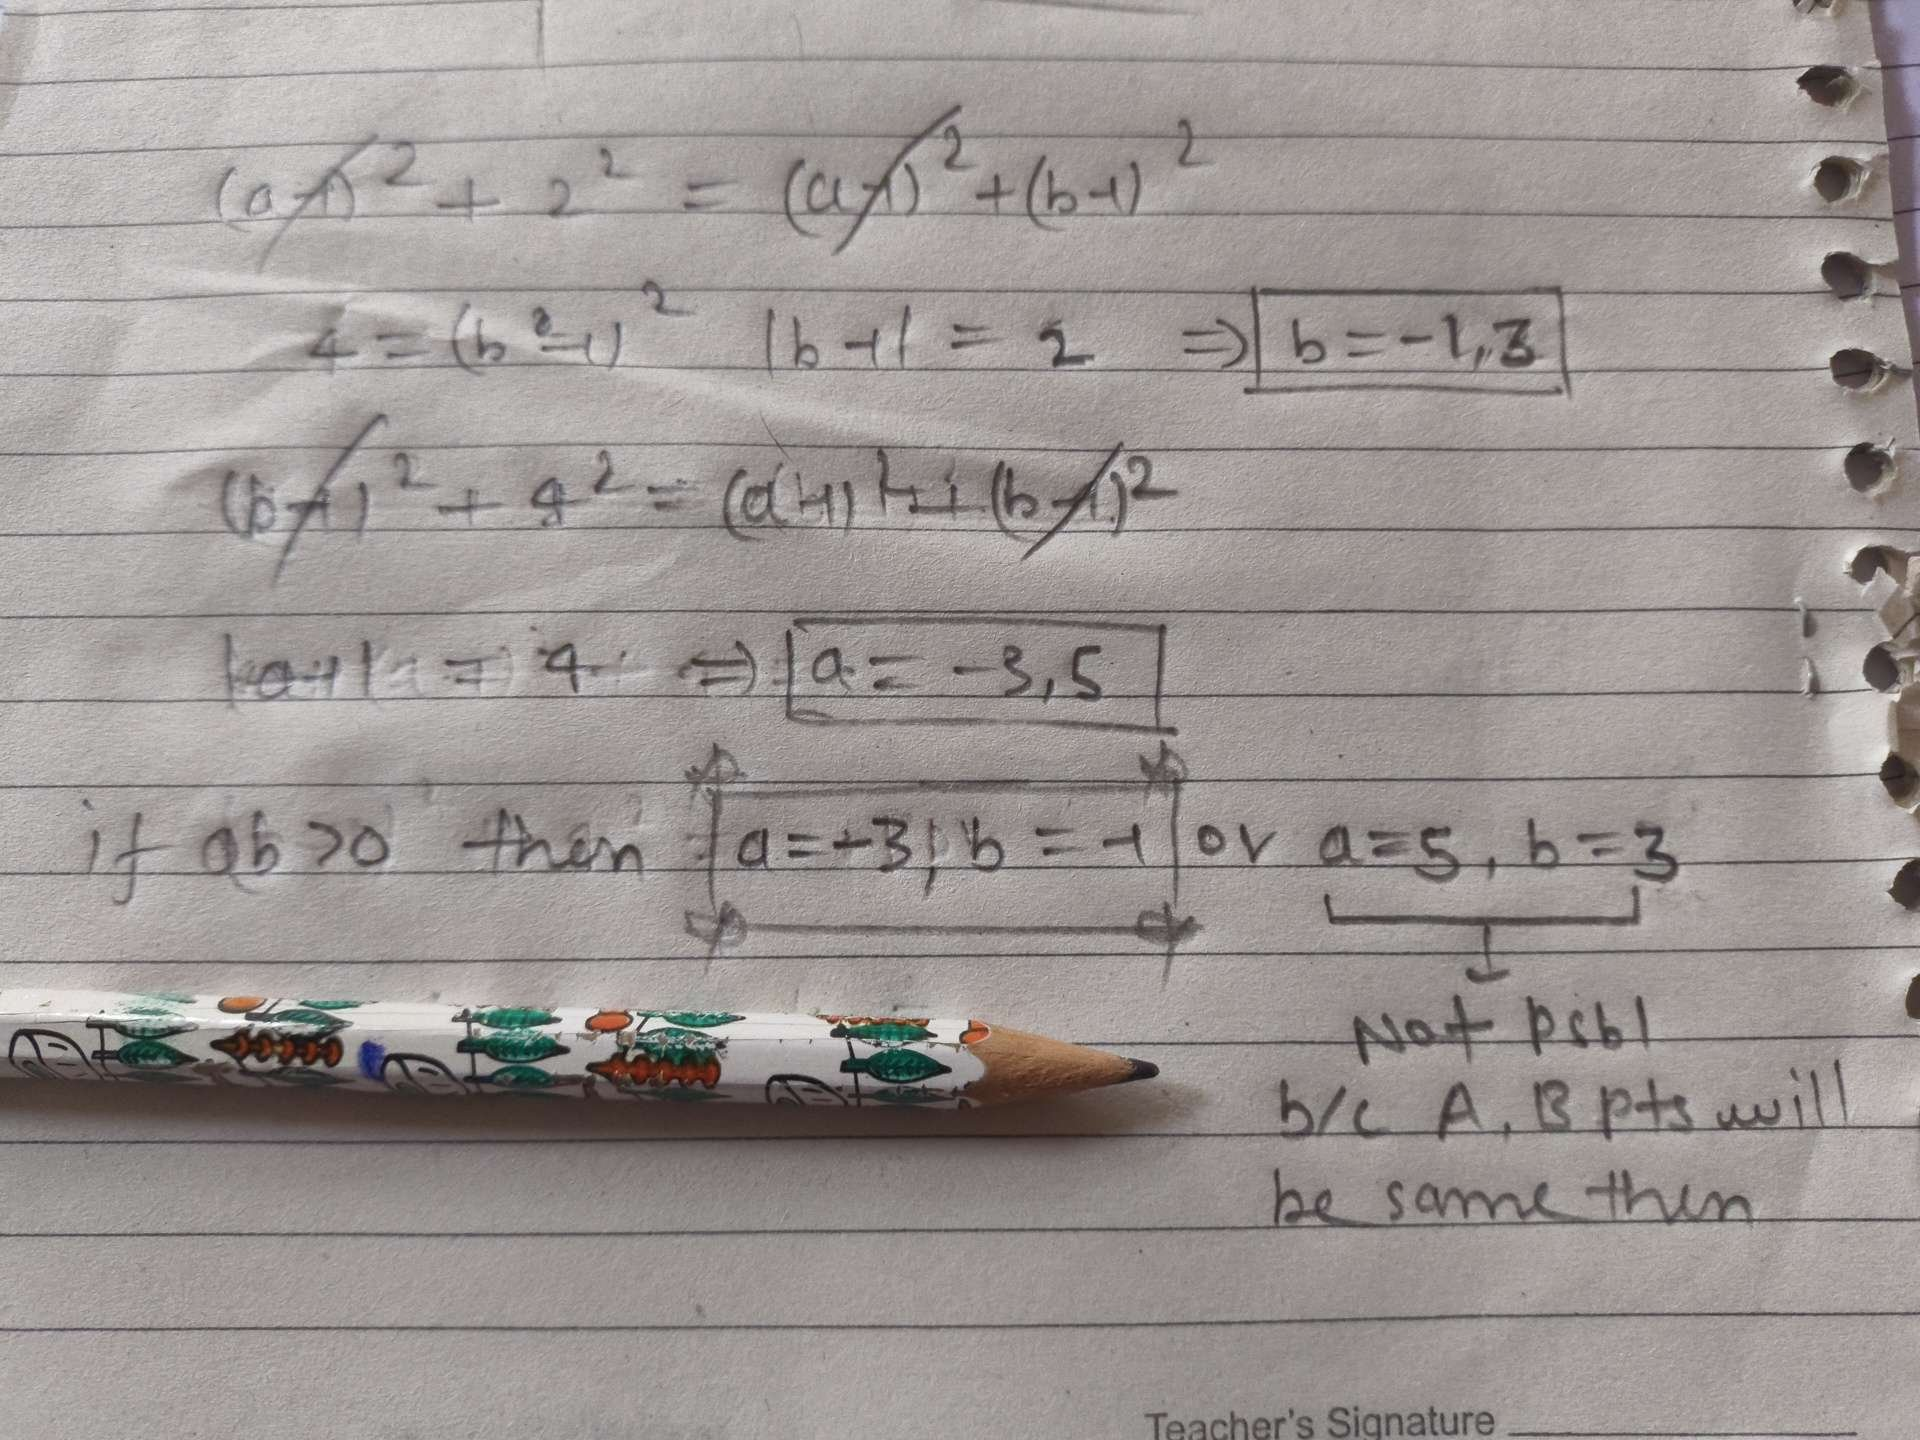 (a-1)² + 2² = (a-1)² + (b-1)²
4 = (b-1)² |b-1| = 2 ⇒ b = -1, 3
(b-1)² + 4² = (a-1)² + (b-1)²
|a-1| = 4 ⇒ a = -3, 5
if ab>0 then a = -3, b = -1 or a=5, b=3
Not psbl
b/c A, B pts will
be same then
Teacher's Signature